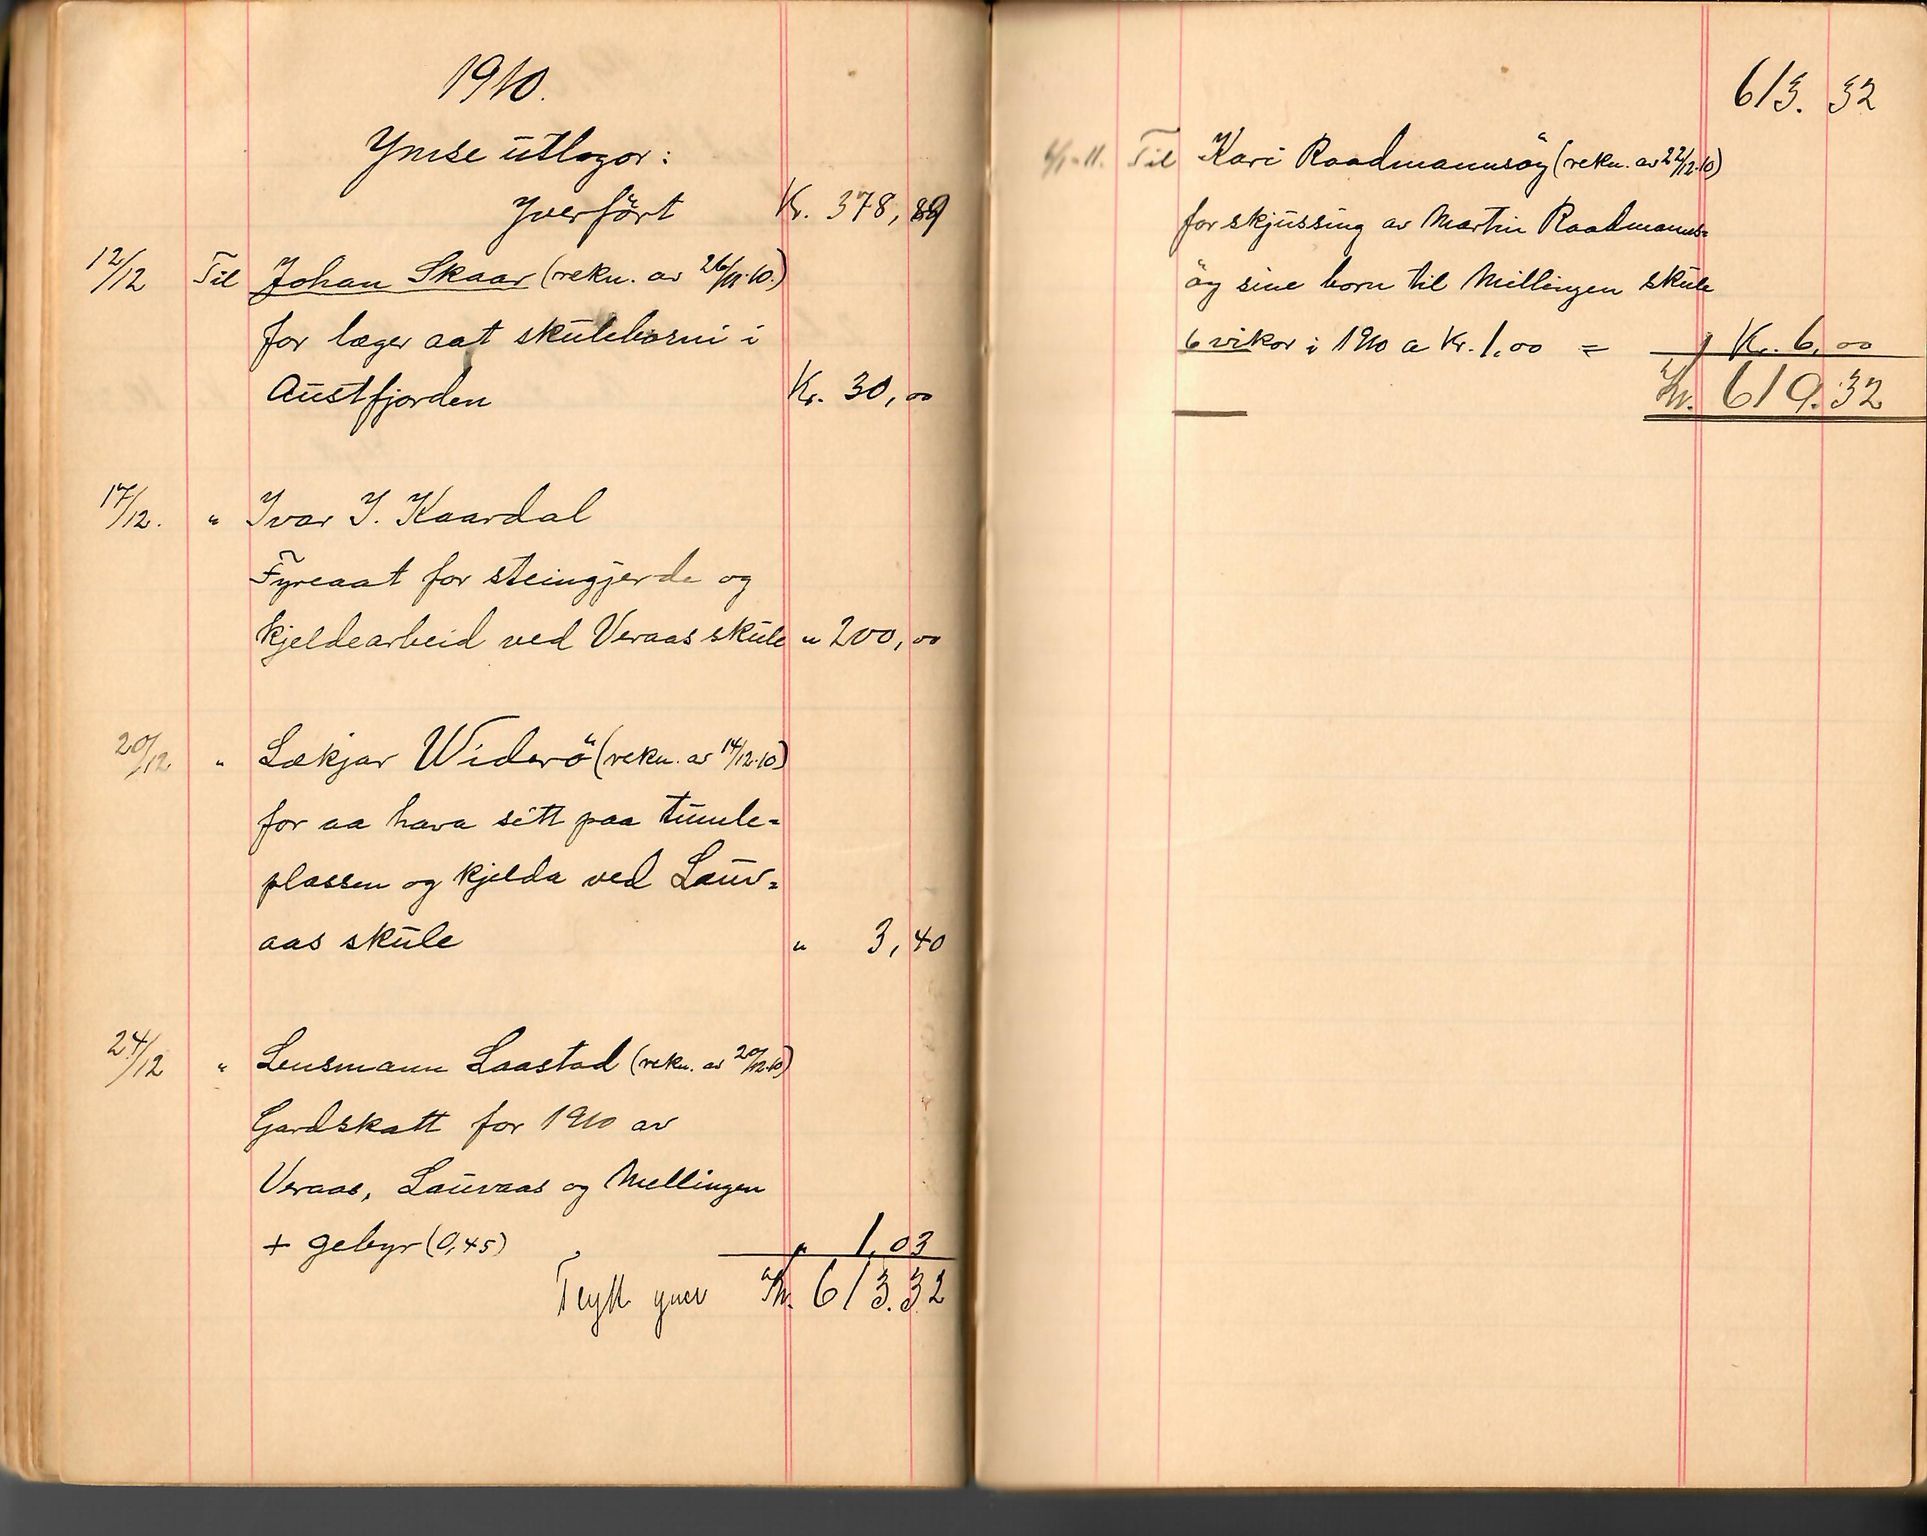 1910.
Ymse utlogor:
Yverfört Kr. 378,89
12/12 Til Johan Skaar (rekn. av 26/11.10.)
for læger aat skuleborni i
Austfjorden Kr. 30,00
17/12. " Ivar I. Kaardal
Fyreaat for steingjerde og
kjeldearbeid ved Veraas skule " 200,00
20/12 " Lækjar Widerö (rekn. av 14/12.10)
for aa hava sétt paa tumle-
plassen og kjelda ved Lauv-
aas skule " 3,40
24/12 " Lensmann Laastad (rekn. av 20/12.10)
Gardskatt for 1910 av
Veraas, Lauvaas og Mellingen
+ gebyr (0,45) " 1,03
Flytt yver Kr. 613.32
613. 32
6/1-11. Til Kari Raadmannsöy (rekn. av 22/12.10)
for skjussing av Martin Raadmanns-
öy sine born til Millingen skule
6 vikor i 1910 a Kr. 1,00 = Kr. 6,00
Kr. 619.32